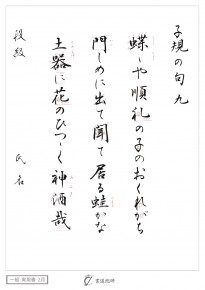 子規の句 九
蝶々や順礼の子のおくれがち
門しめに出て聞て居る蛙かな
土器に花のひつゝく神酒哉
段級 氏名
一般 実用書 2月
書道郵林